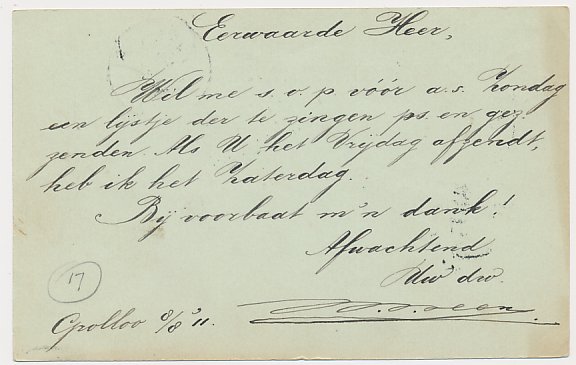 Eerwaarde Heer,
Wil me s.v.p vóór a.s. Zondag
een lijstje der te zingen ps. en gez.
zenden. Als U het Vrijdag afzendt,
heb ik het Zaterdag.
Bij voorbaat m'n dank!
Afwachtend
Uw dw.
17
8/8 '11.